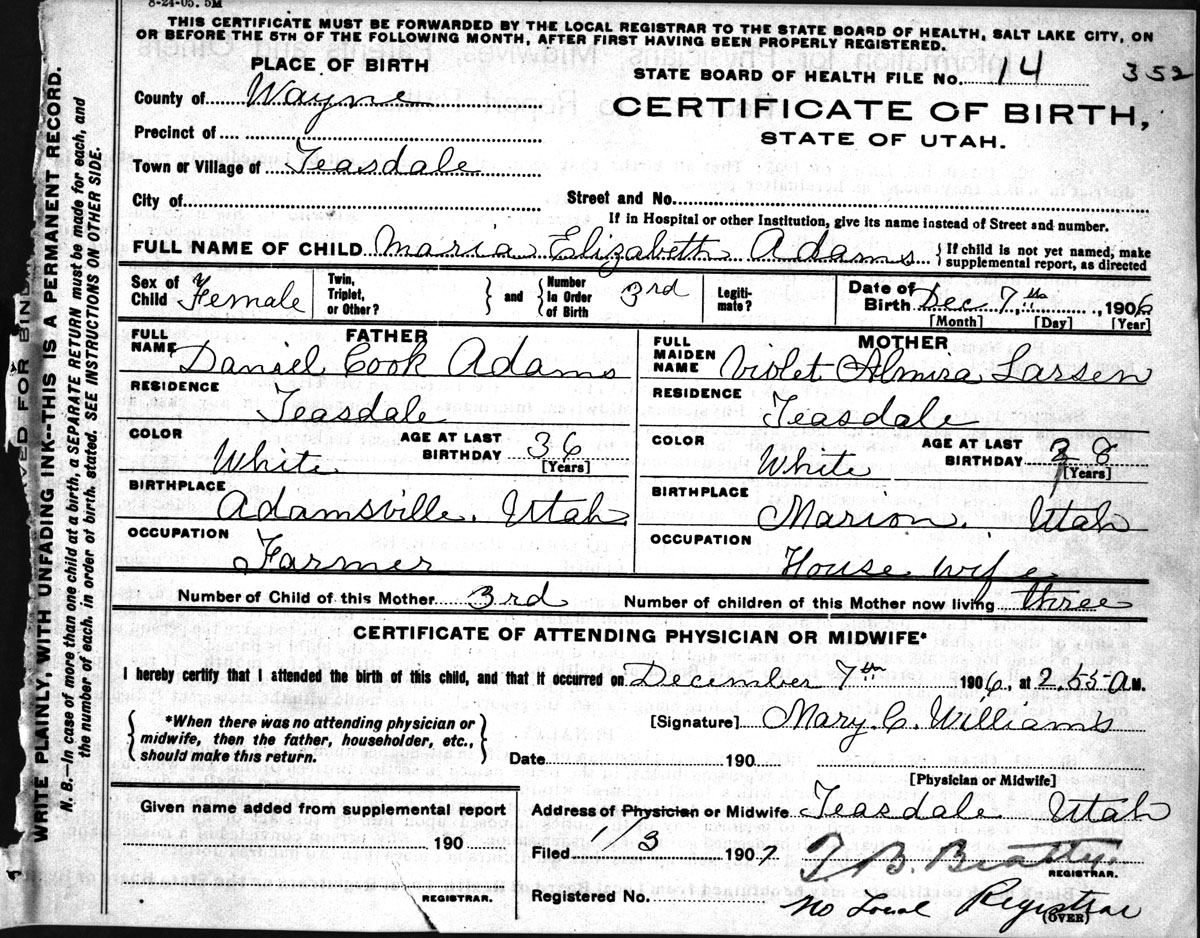 8-24-05. 5M
THIS CERTIFICATE MUST BE FORWARDED BY THE LOCAL REGISTRAR TO THE STATE BOARD OF HEALTH, SALT LAKE CITY, ON
OR BEFORE THE 5TH OF THE FOLLOWING MONTH, AFTER FIRST HAVING BEEN PROPERLY REGISTERED.
PLACE OF BIRTH
STATE BOARD OF HEALTH FILE No. 14 352
County of Wayne
CERTIFICATE OF BIRTH,
STATE OF UTAH.
Precinct of
Town or Village of Teasdale
City of
Street and No.
If in Hospital or other Institution, give its name instead of Street and number.
FULL NAME OF CHILD Maria Elizabeth Adams { If child is not yet named, make
supplemental report, as directed
Sex of
Child Female
Twin,
Triplet,
or Other?
} and {
Number
in Order
of Birth 3rd
Legiti-
mate?
Date of
Birth Dec 7th, 1906
[Month] [Day] [Year]
FATHER
FULL
NAME Daniel Cook Adams
RESIDENCE
Teasdale
COLOR
White
AGE AT LAST
BIRTHDAY 36
[Years]
BIRTHPLACE
Adamsville. Utah.
OCCUPATION
Farmer
MOTHER
FULL
MAIDEN
NAME Violet Almira Larsen
RESIDENCE
Teasdale
COLOR
White
AGE AT LAST
BIRTHDAY 8
[Years]
BIRTHPLACE
Marion. Utah
OCCUPATION
House wife
Number of Child of this Mother 3rd
Number of children of this Mother now living three
CERTIFICATE OF ATTENDING PHYSICIAN OR MIDWIFE*
I hereby certify that I attended the birth of this child, and that it occurred on December 7th 1906, at 2.55 A M.
{ *When there was no attending physician or
midwife, then the father, householder, etc.,
should make this return. }
[Signature] Mary. C. Williams
Date 190
[Physician or Midwife]
Given name added from supplemental report
190
REGISTRAR.
Address of Physician or Midwife Teasdale Utah
Filed 1 3 1907
T. B. Beatty.
REGISTRAR.
Registered No.
No Local Registrar
(OVER)
RVED FOR BIND
WRITE PLAINLY, WITH UNFADING INK--THIS IS A PERMANENT RECORD.
N. B.—In case of more than one child at a birth, a SEPARATE RETURN must be made for each, and
the number of each, in order of birth, stated. SEE INSTRUCTIONS ON OTHER SIDE.